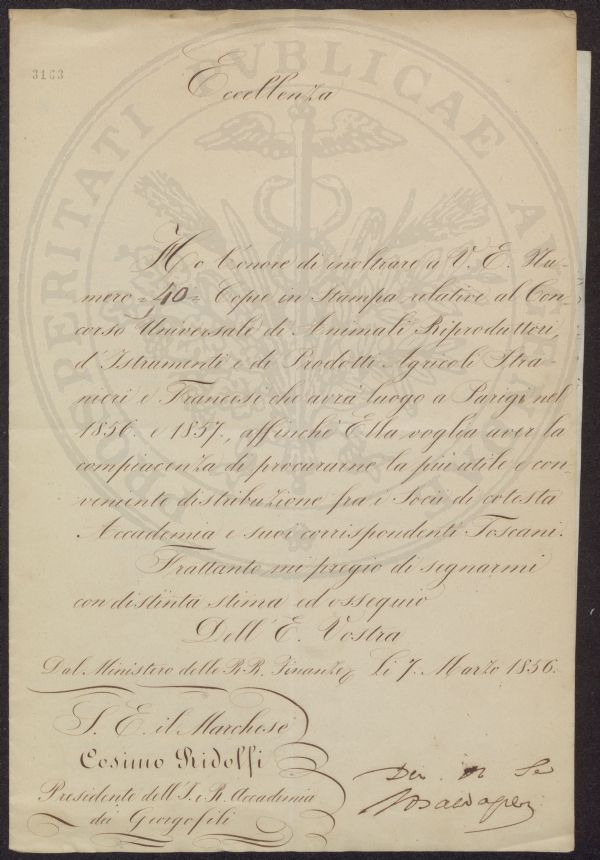 3163
PROSPERITATI PUBLICAE AUGENDAE
Eccellenza
Ho l'onore di inoltrare a V. E. Nu-
mero = 40 = Copie in Stampa relative al Con-
corso Universale di Animali Riproduttori,
d'Istrumenti e di Prodotti Agricoli Stra-
nieri e Francesi che avrà luogo a Parigi nel
1856. e 1857., affinchè Ella voglia aver la
compiacenza di procurarne la più utile e con-
veniente distribuzione fra i Socii di cotesta
Accademia e suoi corrispondenti Toscani.
Frattanto mi pregio di segnarmi
con distinta stima ed ossequio
Dell'E. Vostra
Dal Ministero delle RR. Finanze
Li 7. Marzo 1856.
S. E. il Marchese
Cosimo Ridolfi
Presidente dell'I. e R. Accademia
dei Georgofili